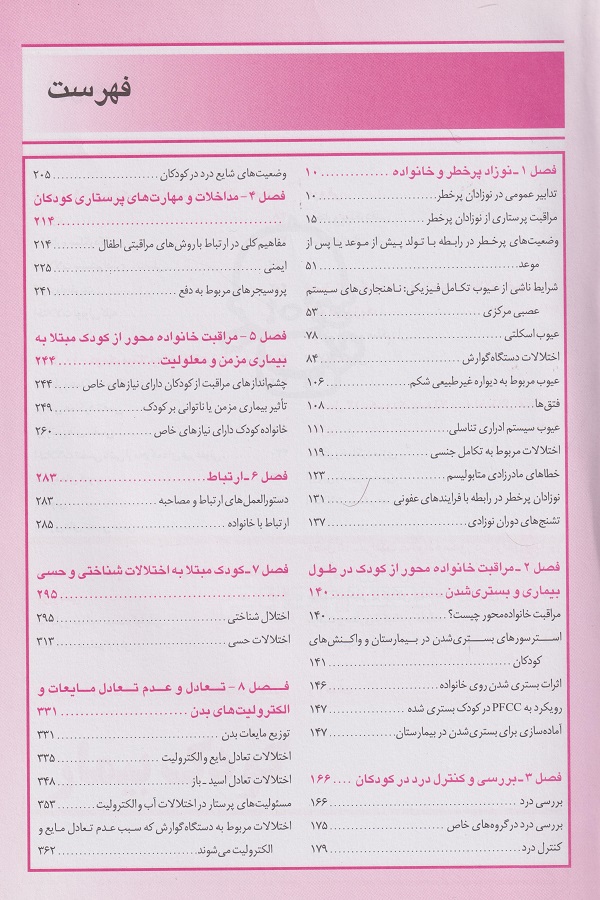 فهرست
فصل ۱ـ نوزاد پرخطر و خانواده .............. ۱۰
تدابیر عمومی در نوزادان پرخطر .............. ۱۰
مراقبت پرستاری از نوزادان پرخطر .............. ۱۵
وضعیت‌های پرخطر در رابطه با تولد پیش از موعد یا پس از
موعد .............. ۵۱
شرایط ناشی از عیوب تکامل فیزیکی: ناهنجاری‌های سیستم
عصبی مرکزی .............. ۵۳
عیوب اسکلتی .............. ۷۸
اختلالات دستگاه گوارش .............. ۸۴
عیوب مربوط به دیواره غیرطبیعی شکم .............. ۱۰۶
فتق‌ها .............. ۱۰۸
عیوب سیستم ادراری تناسلی .............. ۱۱۱
اختلالات مربوط به تکامل جنسی .............. ۱۱۹
خطاهای مادرزادی متابولیسم .............. ۱۲۳
نوزادان پرخطر در رابطه با فرایندهای عفونی .............. ۱۳۱
تشنج‌های دوران نوزادی .............. ۱۳۷
فصل ۲ـ مراقبت خانواده محور از کودک در طول
بیماری و بستری‌شدن .............. ۱۴۰
مراقبت خانواده‌محور چیست؟ .............. ۱۴۰
استرسورهای بستری‌شدن در بیمارستان و واکنش‌های
کودکان .............. ۱۴۱
اثرات بستری شدن روی خانواده .............. ۱۴۶
رویکرد به PFCC در کودک بستری شده .............. ۱۴۷
آماده‌سازی برای بستری‌شدن در بیمارستان .............. ۱۴۷
فصل ۳ـ بررسی و کنترل درد در کودکان .... ۱۶۶
بررسی درد .............. ۱۶۶
بررسی درد در گروه‌های خاص .............. ۱۷۵
کنترل درد .............. ۱۷۹
وضعیت‌های شایع درد در کودکان .............. ۲۰۵
فصل ۴ـ مداخلات و مهارت‌های پرستاری کودکان
.............. ۲۱۴
مفاهیم کلی در ارتباط با روش‌های مراقبتی اطفال .......... ۲۱۴
ایمنی .............. ۲۲۵
پروسیجرهای مربوط به دفع .............. ۲۴۱
فصل ۵ـ مراقبت خانواده محور از کودک مبتلا به
بیماری مزمن و معلولیت .............. ۲۴۴
چشم‌اندازهای مراقبت از کودکان دارای نیازهای خاص ...... ۲۴۴
تأثیر بیماری مزمن یا ناتوانی بر کودک .............. ۲۴۹
خانواده کودک دارای نیازهای خاص .............. ۲۶۰
فصل ۶ـ ارتباط .............. ۲۸۳
دستورالعمل‌های ارتباط و مصاحبه .............. ۲۸۳
ارتباط با خانواده .............. ۲۸۵
فصل ۷ـ کودک مبتلا به اختلالات شناختی و حسی
.............. ۲۹۵
اختلال شناختی .............. ۲۹۵
اختلالات حسی .............. ۳۱۳
فصل ۸ـ تعادل و عدم تعادل مایعات و
الکترولیت‌های بدن .............. ۳۳۱
توزیع مایعات بدن .............. ۳۳۱
اختلالات تعادل مایع و الکترولیت .............. ۳۳۵
اختلالات تعادل اسید ـ باز .............. ۳۴۸
مسئولیت‌های پرستار در اختلالات آب و الکترولیت ......... ۳۵۳
اختلالات مربوط به دستگاه گوارش که سبب عدم تعادل مایع و
الکترولیت می‌شوند .............. ۳۶۲